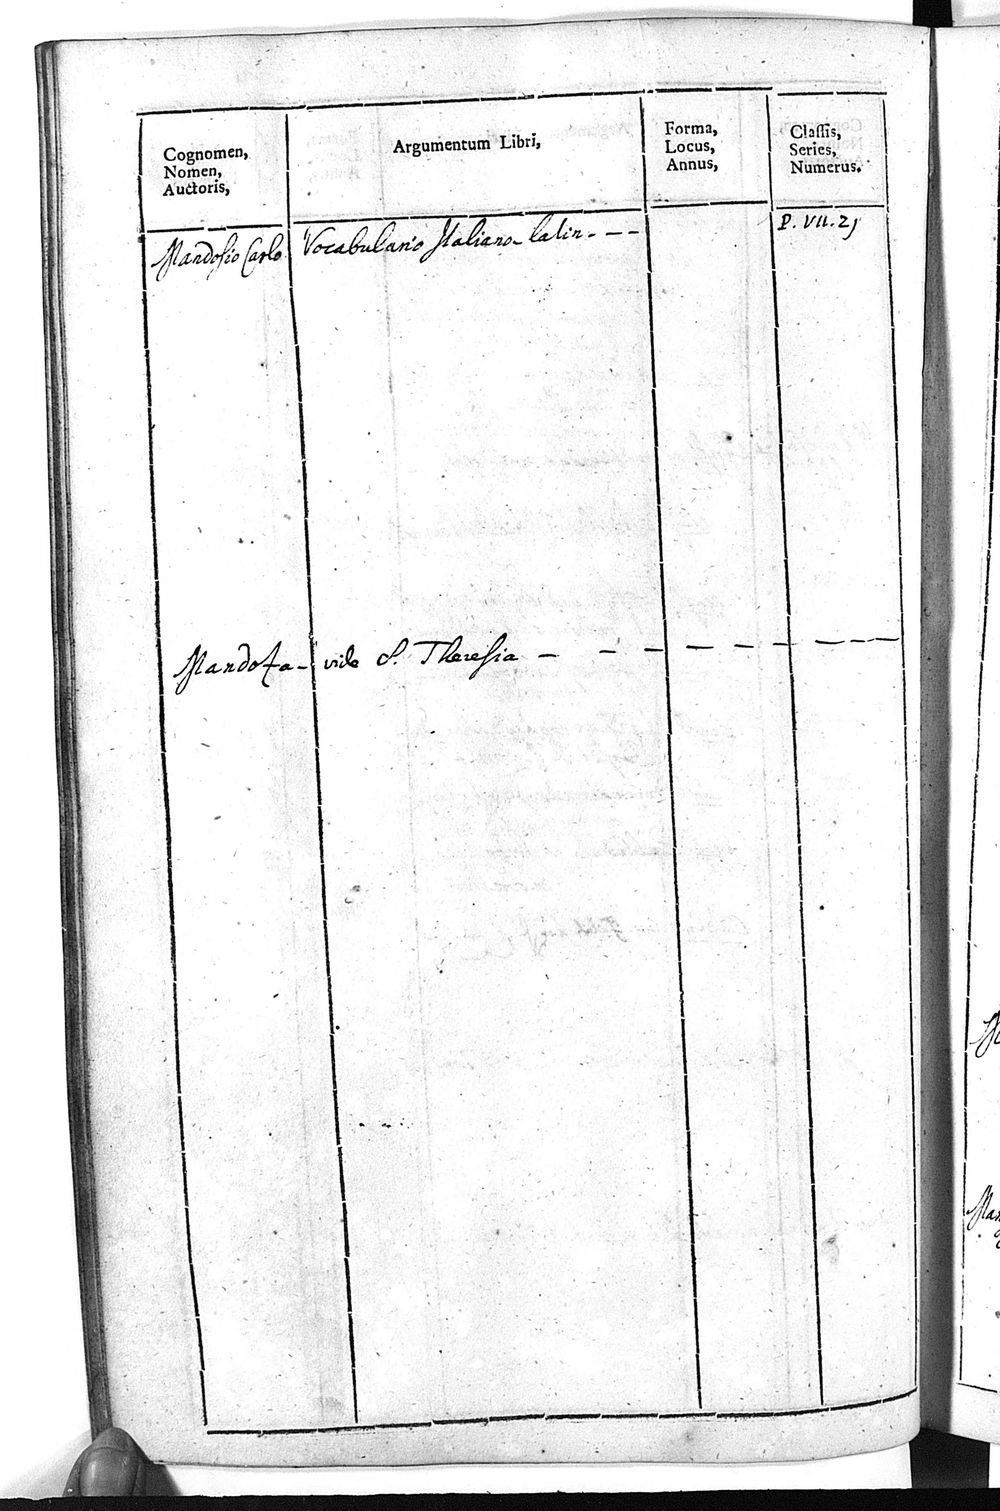 Cognomen,
Nomen,
Auctoris,
Argumentum Libri,
Forma,
Locus,
Annus,
Classis,
Series,
Numerus.
Mandosio Carlo Vocabulario Italiano-latin. - - - P. VII. 25
Mandoza - vide S. Theresia - - - - - - - - -